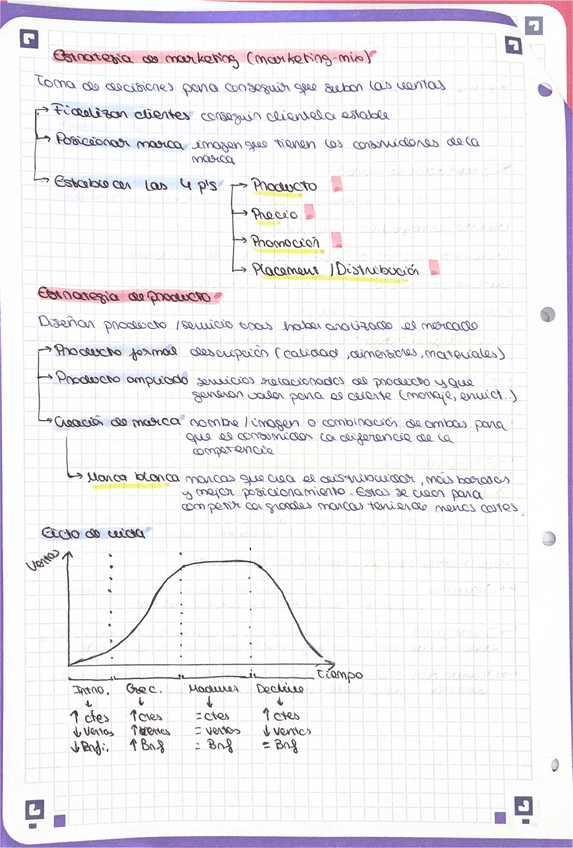 Estrategia de marketing (marketing-mix)
Toma de decisiones para conseguir que suban las ventas
→ Fidelizar clientes conseguir clientela estable
→ Posicionar marca imagen que tienen los consumidores de la
marca
→ Establecer las 4 p's → Producto
→ Precio
→ Promoción
→ Placement / Distribución
Estrategia de producto
Diseñar producto / servicio tras haber analizado el mercado
→ Producto formal descripción (calidad, dimensiones, materiales)
→ Producto ampliado servicios relacionados al producto y que
generan valor para el cliente (montaje, envío, etc.)
→ Creación de marca nombre / imagen o combinación de ambas para
que el consumidor la diferencie de la
competencia
→ Marca blanca marcas que crea el distribuidor, más baratas
y mejor posicionamiento. Estas se crean para
competir con grandes marcas teniendo menos costes.
Ciclo de vida
Ventas
Tiempo
Intro. Crec. Madurez Declive
↓ ↓ ↓ ↓
↑ ctes ↑ ctes = ctes ↑ ctes
↓ Ventas ↑ Ventas = ventas ↓ ventas
↓ Bnfi. ↑ Bnf = Bnf = Bnf